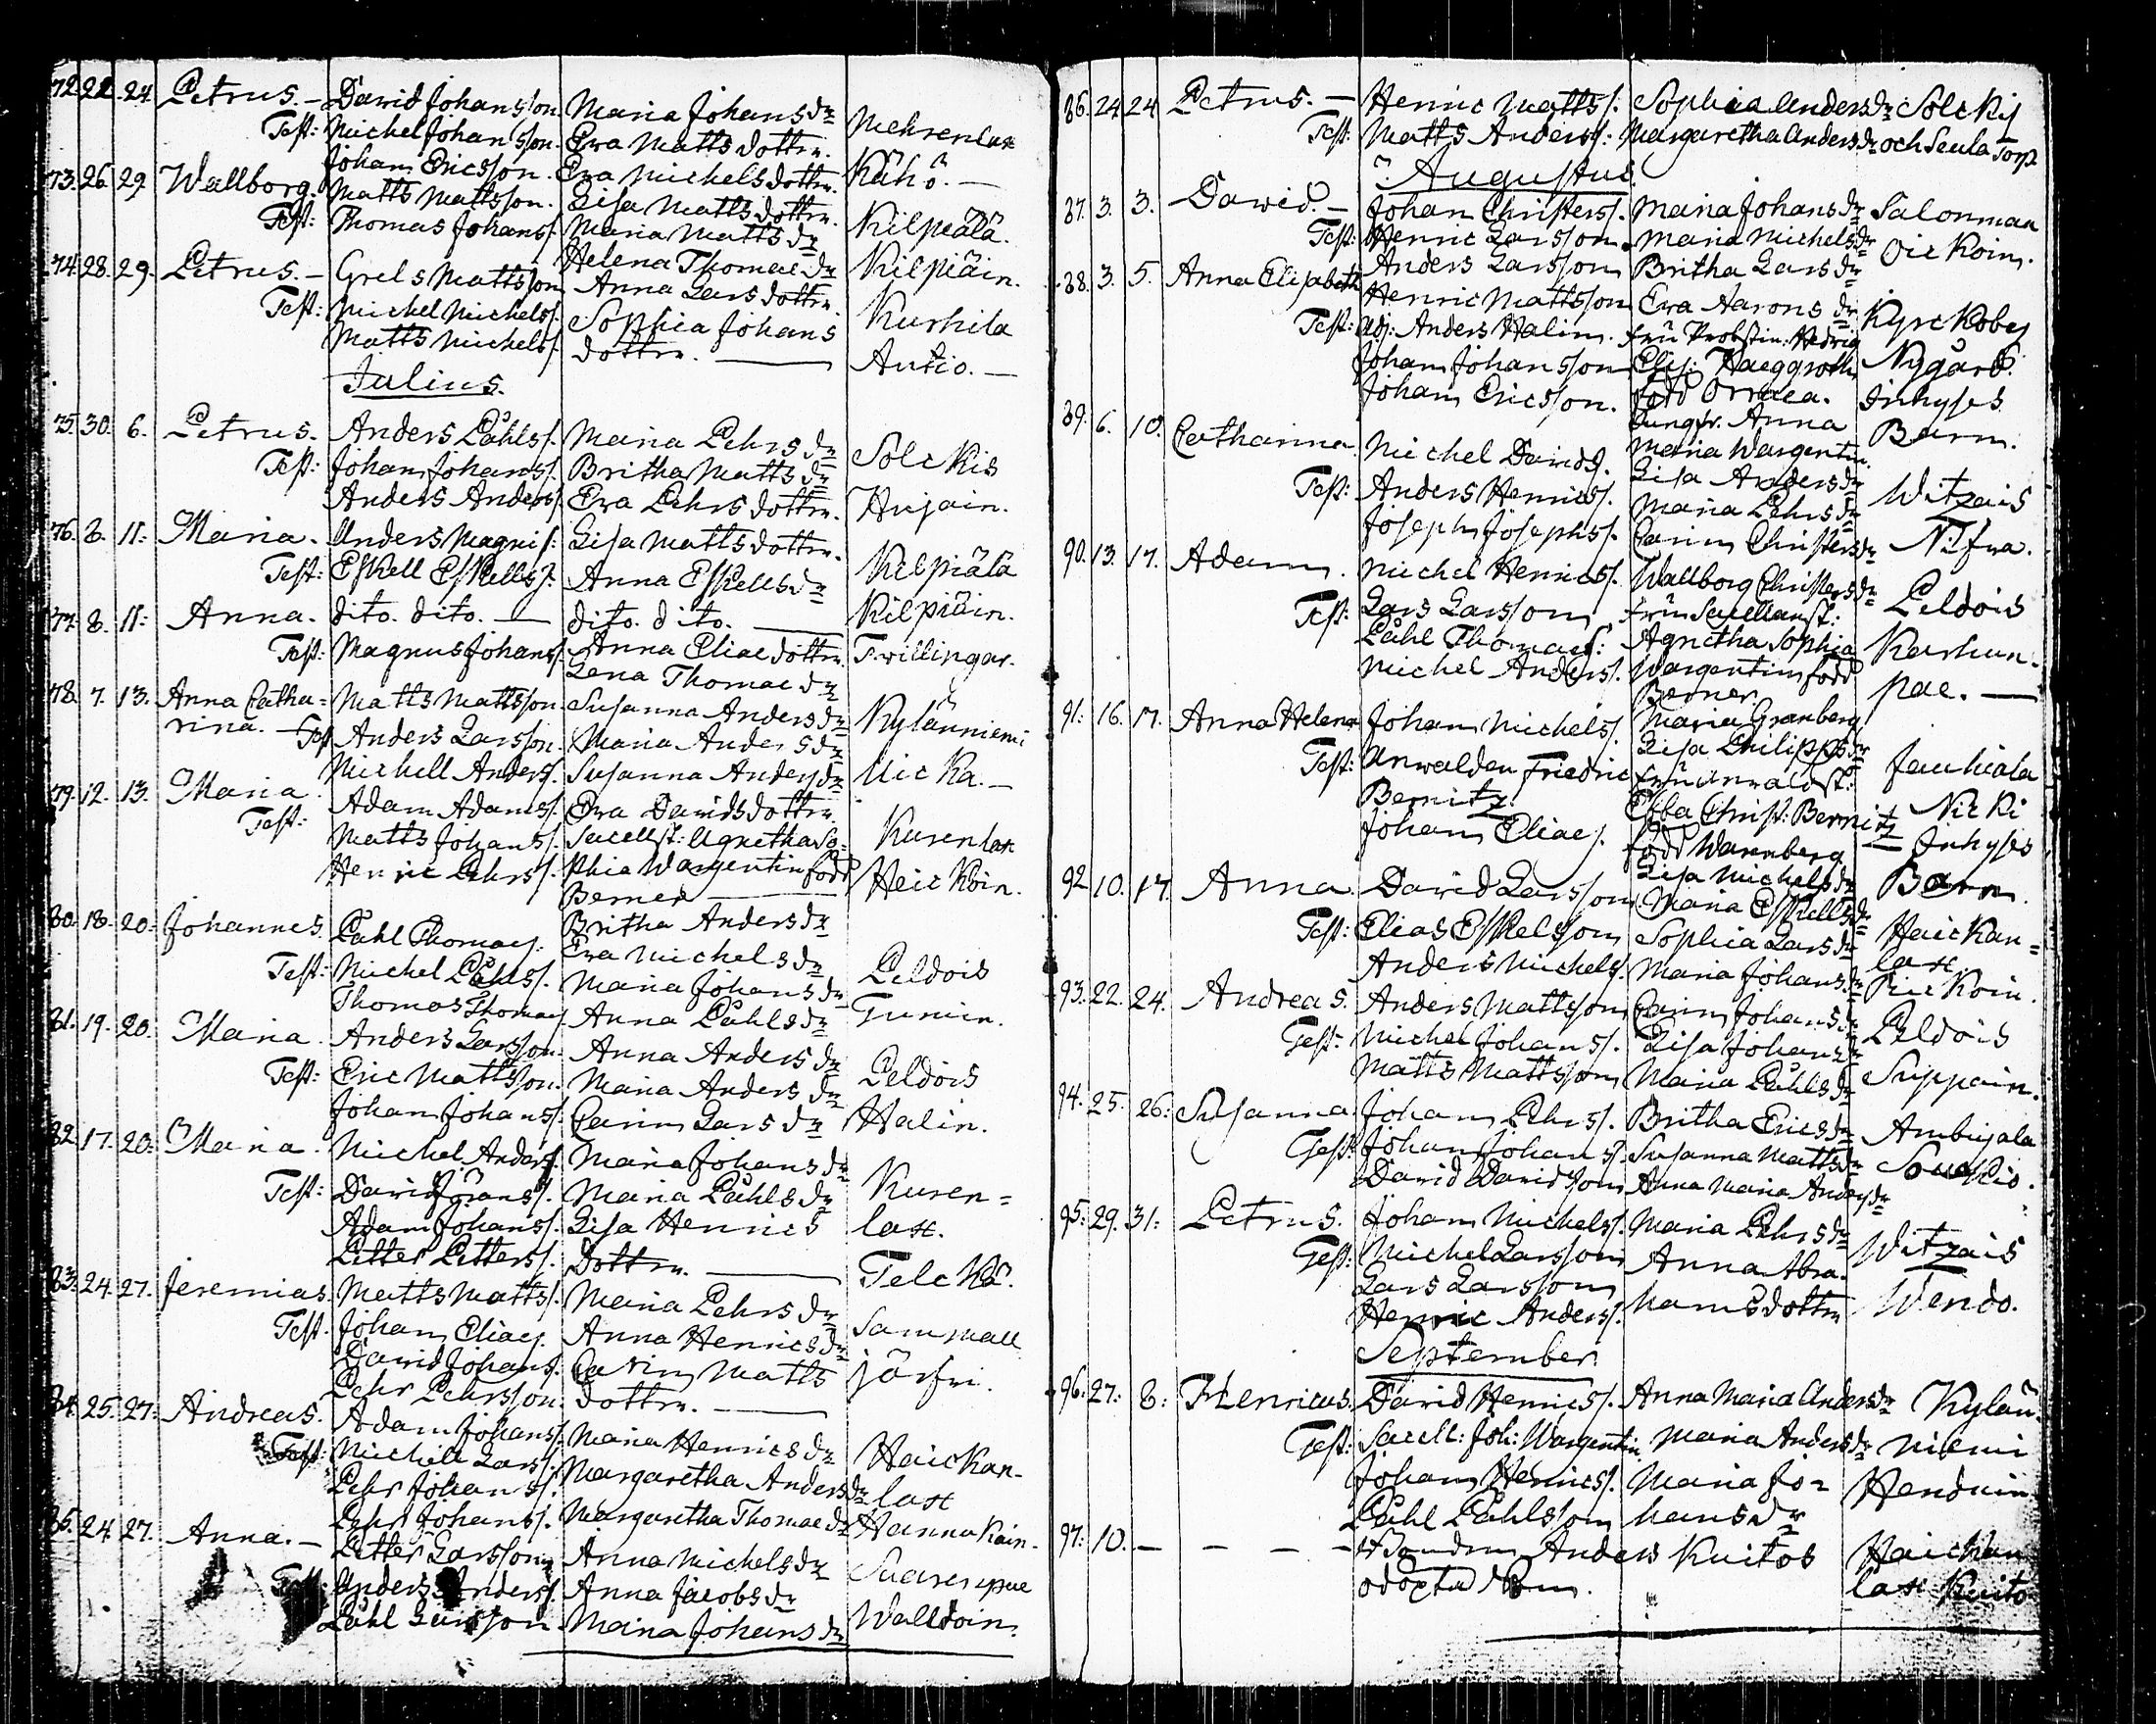 72. 22. 24. Petrus. – David Johansson Maria Johans dr Mehrenlax
Test: Michel Johansson. Eva Matts dotter. Kähö. –
Johan Ericsson. Eva Michels dotter.
73. 26. 29. Wallborg. Matts Mattsson. Lisa Matts dotter. Kilpiälä.
Test: Thomas Johans/. Maria Matts dr Kilpiäin.
Helena Thomae dr
74. 28. 29. Petrus. – Grels Mattsson Anna Lars dotter. Kurkila
Test: Michel Michels/. Sophia Johans Autio. –
Matts Michels/. dotter. –
Julius.
75. 30. 6. Petrus. Anders Påhls/. Maria Pehrs dr Solckis
Test: Johan Johans/. Britha Matts dr Hujain.
Anders Anders/. Eva Pehrs dotter.
76. 8. 11: Maria. Anders Magni/: Lisa Matts dotter. Kilpiälä
Test: Eskell Eskells/. Anna Eskells dr Kilpiäin.
77. 8. 11: Anna. dito. dito. – dito. dito. – Twillingar.
Test: Magnus Johans/. Anna Eliae dotter.
Lena Thomae dr
78. 7. 13. Anna Catha= Matts Mattsson. Susanna Anders dr Kylänniemi
rina. – Test Anders Larsson. Maria Anders dr Uicka. –
Michell Anders/. Susanna Anders dr
79. 12. 13. Maria. Adam Adams/. Eva Davids dotter. Kurenlax
Test: Matts Johans/. Sacellst: Agnetha So= Heickoin.
Henric Pehrs/. phia Wargentin född
Berner –
80. 18. 20: Johannes. Påhl Thomae/. Britha Anders dr Peldois
Test: Michel Påhls/. Eva Michels dr Tumin.
Thomas Thomae/ Maria Johans dr
81. 19. 20. Maria. Anders Larsson. Anna Påhls dr Peldois
Test: Eric Mattsson. Anna Anders dr Halin.
Johan Johans/. Maria Anders dr
Carin Lars dr
82. 17. 20: Maria. Michel Anders/. Maria Johans dr Kuren=
Test: David Johans/. Maria Påhls dr lax.
Adam Johans/. Lisa Henrics Telckä.
Petter Petters/. dotter. –
83. 24. 27. Jeremias. Matts Matts/. Maria Pehrs dr Sammall
Test. Johan Eliae/. Anna Henrics dr järfvi.
David Johans/. Carin Matts
Pehr Pehrsson. dotter. –
84. 25. 27: Andreas. Adam Johans/. Maria Henrics dr Haickan-
Test: Michell Lars/. Margaretha Anders dr lax
Pehr Johans/. Margaretha Thomae dr Hannukain.
Pehr Johans/.
85. 24. 27. Anna. – Petter Larsson Anna Michels dr Suurenpae
Test: Anders Anders/. Anna Jacobs dr Walldoin.
Påhl Larsson Maria Johans dr
86. 24. 24. Petrus. – Henric Matts/. Sophia Anders dr Solckis
Test: Matts Anders/. Margaretha Anders dr och Seula Torp
Augustus.
87. 3. 3. David. – Johan Christers/. Maria Johans dr Salonmaa
Test: Henric Larsson. Maria Michels dr Oickoin.
Anders Larsson Britha Lars dr
88. 3. 5. Anna Elisabeth Henric Mattsson Eva Aarons dr Kyrckoby
Test: Adj: Anders Halin. Fru Probstin. Hedvig Nygård.
Johan Johansson Elis: Haeggroth Inhyses
Johan Ericsson. född Orraea. Barn.
Jungfr. Anna
Maria Wargentin.
89. 6. 10. Catharina Michel Davids/. Lisa Anders dr Witzais
Test: Anders Henrics/. Maria Pehrs dr Nifva.
Joseph Josephs/. Carin Christers dr
90. 13. 17. Adam. Michel Henrics/. Wallborg Christers dr Peldois
Test: Lars Larsson Fru Sacellanst: Karhun-
Påhl Thomae/: Agnetha Sophia pae. –
Michel Anders/. Wargentin född
Berner.
91. 16. 17. Anna Helena Johan Michels/. Maria Granberg Jauhiala
Test: Anwalden Friedric Lisa Philipps dr Nicki
Bernitz. Fru Anvaldst: Inhyses
Johan Eliae/. Ebba Christ: Bernitz Barn.
född Warnberg
Lisa Michels dr
92. 10. 17. Anna. David Larsson. Maria Eskells dr Haickan=
Test: Elias Eskelsson Sophia Lars dr lax
Anders Michels/. Maria Johans dr Rickoin.
93. 22. 24. Andreas. Anders Mattsson Carin Johans dr Peldois
Test: Michel Johans/. Lisa Johans dr Suppain.
Matts Mattsson Maria Påhls dr
94. 25. 26: Susanna. Johan Pehrs/. Britha Erics dr Ambujala
Test: Johan Johans/. Susanna Matts dr Souckio.
David Davidsson Anna Maria Anders dr
95: 29. 31: Petrus. Johan Michels/. Maria Pehrs dr Witzais
Test: Michel Larsson Anna Abra- Wendo.
Lars Larsson hams dotter
Henric Anders/.
September.
96: 27: 8: Henricus. David Henrics/. Anna Maria Anders dr Kylän-
Test: Sacell: Joh: Wargentin Maria Anders dr niemi
Johan Henrics/. Maria Jo= Henduin.
Påhl Påhlsson hans dr
97: 10. – – – – Bonden Anders Kuitos Haickan
odöpta Barn. lax Kuito